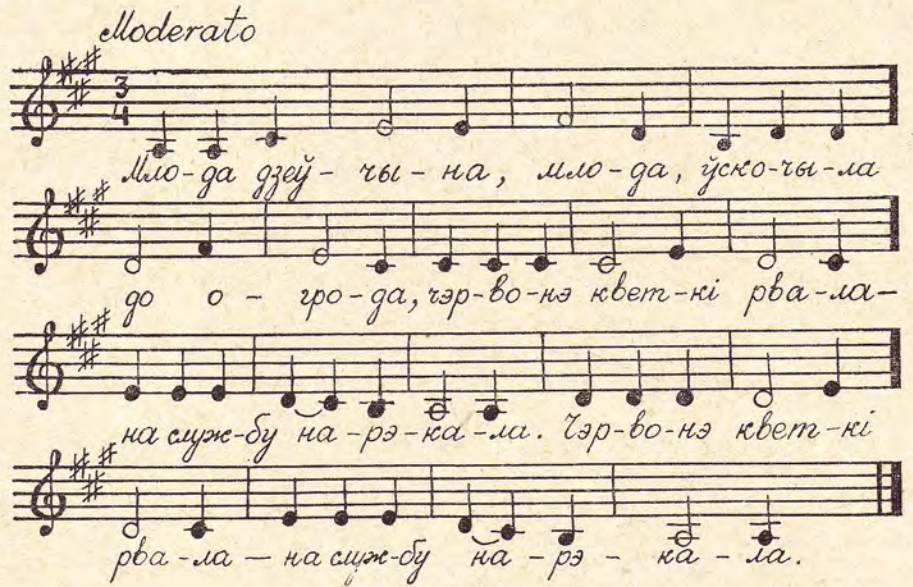 Moderato
3
4
Мло-да дзеў-чы-на, мло-да, ўско-чы-ла
до о-гро-да, чэр-во-нэ квет-кі рва-ла-
на служ-бу на-рэ-ка-ла. Чэр-во-нэ квет-кі
рва-ла — на служ-бу на-рэ-ка-ла.